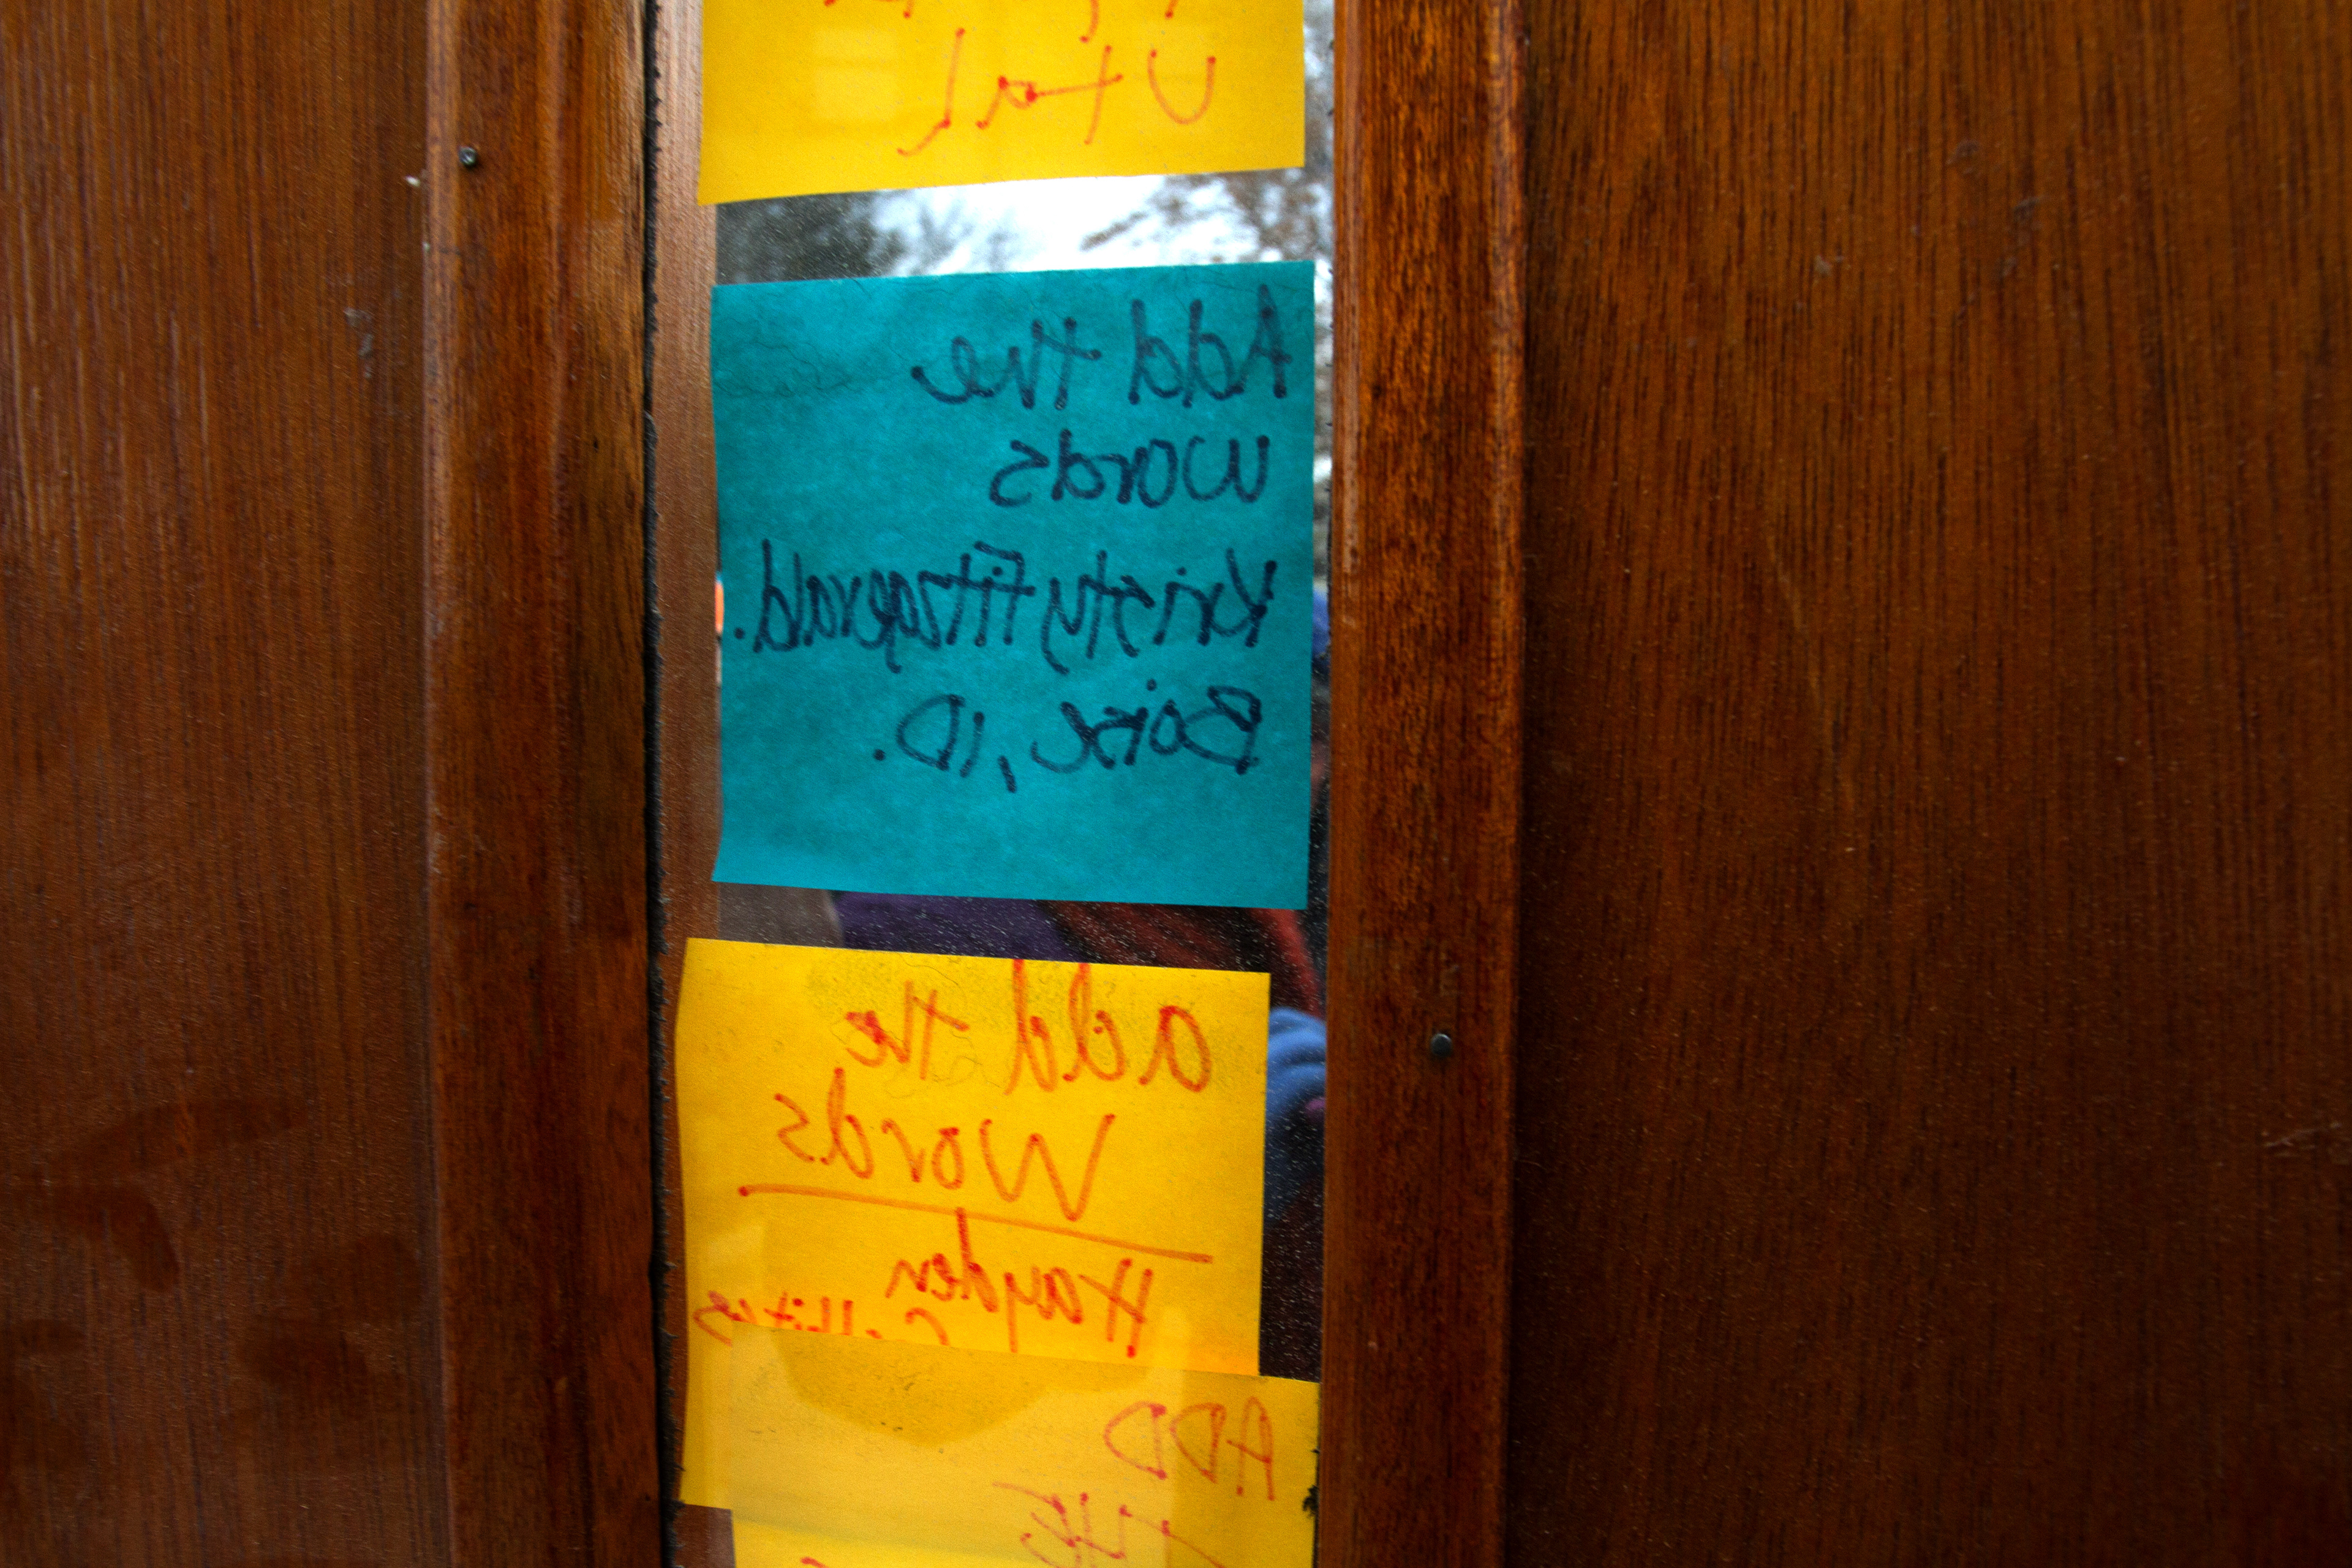 Utah
Add the
Words
Kristy Fitzgerald.
Boise, ID.
add the
Words
Hayden
ADD
THE